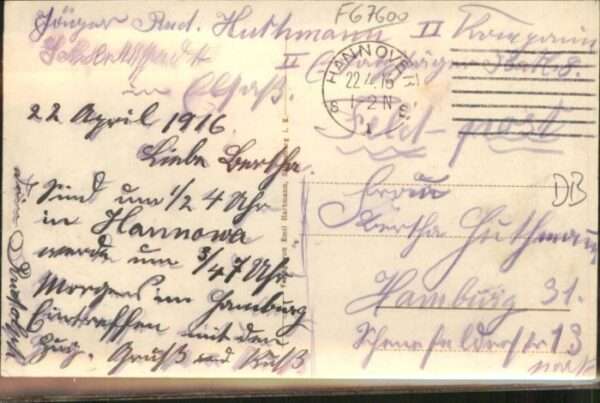 F67600
Jäger Rud. Huthmann II Kompanie
Schlettstadt II Ers. Jäger Batl. 8.
in Elsaß.
HANNOVER
22.4.16
1-2 N
S S
1
Feld-post
22 April 1916
Liebe Bertha.
Sind um 1/2 4 Uhr
in Hannowa
werde um 3/4 7 Uhr
Morgens im Hamburg
Eintreffen mit den
Zug. Gruß und Kuß
Dein Rudolph
Emil Hartmann,
DB
Frau
Bertha Huthmann
Hamburg 31.
Schenefelderstr 13